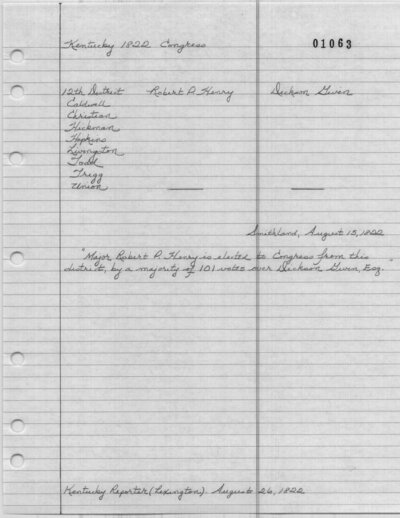 Kentucky 1822 Congress 01063
12th District Robert P. Henry Dickson Given
Caldwell
Christian
Hickman
Hopkins
Livingston
Todd
Trigg
Union
Smithland, August 15, 1822
"Major Robert P. Henry is elected to Congress from this
district, by a majority of 101 votes over Dickson Given, Esq."
Kentucky Reporter (Lexington). August 26, 1822.